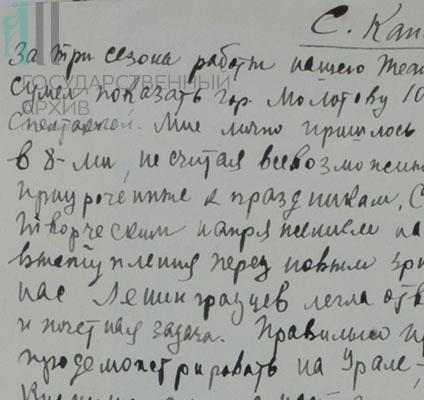 С. Кап
За три сезона работы нашего Теат
ГОСУДАРСТВЕННЫЙ
сумел показать гор. Молотову 10
АРХИВ
Спектаклей. Мне лично пришлось
в 8-ми, не считая всевозможных
приуроченные к праздникам, С
творческим напряжением на
выступления перед новым зри
нас Ленинградцев легла отв
и почетная задача. Правильно пр
продемонстрировать на Урале,